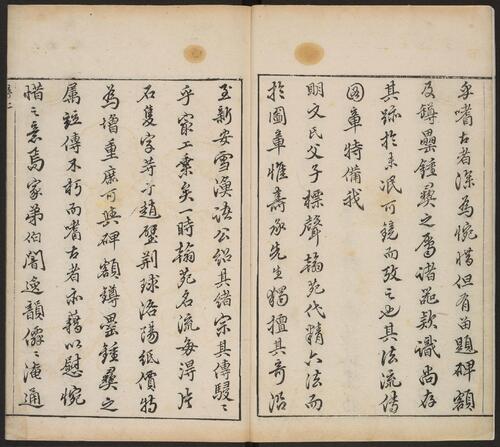 乎嗜古者深為惋惜但有留題碑額
及鐏罍鍾彝之屬諸器款識尚存
其跡於未泯可鏡而攷之也其法流傳
國章特備我
明文氏父子標聲翰苑代精六法而
於圖章惟壽承先生獨擅其奇沿
至新安雪漁諸公紹其緒宗其傳駸〻
乎家工業矣一時翰苑名流每得片
石隻字芳于趙璧荆球洛陽紙價特
為增重庶可與碑額鐏罍鍾彝之
屬竝傳不朽而嗜古者亦藉以慰惋
惜之意焉家弟伯闇逸韻僊〻淹通